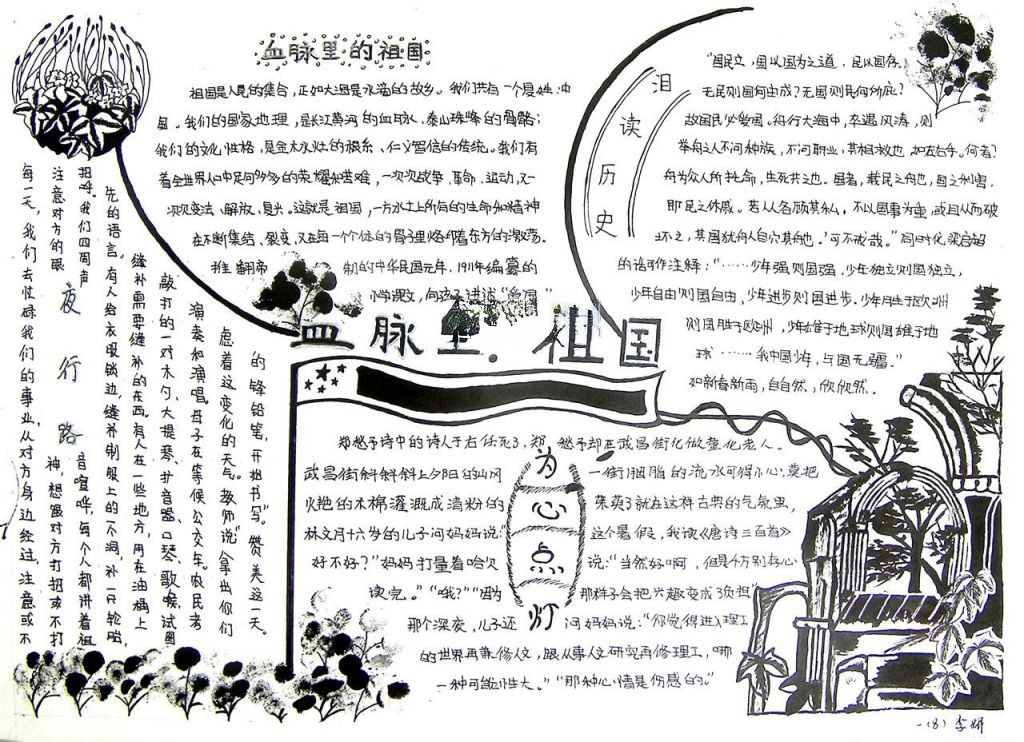 血脉里的祖国
祖国是人民的集合，正如大海是水滴的故乡。我们共有一个母体：中
国。我们的国家地理，是长江黄河的血脉、泰山珠峰的骨骼；
我们的文化性格，是金木水火土的根系、仁义智信的传统。我们有
着全世界人口中足可多多的荣耀和苦难，一次次战争、革命、运动，又一
次次变法、解放、复兴。这就是祖国，一方水土上所有的生命和精神
在不断集结、裂变，又在每一个个体的骨子里烙印着东方的激荡。
推翻帝制的中华民国元年，1911年编纂的
小学课文，向孩子讲述“爱国”
泪读历史
“国民立，国以国为之道，民以国存，
无民则国何由成？无国则民何所庇？
故国民必爱国。舟行大海中，卒遇风涛，则
举舟之人不问种族，不问职业，其相救也，如左右手。何者？
舟为众人所托命，生死共之也。国者，载民之舟也，国之利害，
即民之休戚。若人各顾其私，不以国事为重，或且从而破
坏之，其国犹舟人自穴其舟也。可不戒哉。”同时代梁启超
的话可作注解：“……少年强则国强，少年独立则国独立，
少年自由则国自由，少年进步则国进步，少年胜于欧洲
则国胜于欧洲，少年雄于地球则国雄于地
球……我中国少年，与国无疆。”
如新春新雨，自自然，欣欣然。
血脉里·祖国
为心点灯
郑愁予诗中的诗人于右任死了，郑愁予却在武昌街化做卖化老人。
武昌街斜斜斜上夕阳的山冈一街胭脂的流水可得小心莫把
火艳的木棉灌溉成清粉的茱萸了就在这样古典的气氛里，
林文月十六岁的儿子问妈妈说：“这个暑假，我读《唐诗三百首》
好不好？”妈妈打量着哈欠说：“当然好啊，但是千万别存心
读完。”“哦？”“因为那样子会把兴趣变成了负担”
那个深夜，儿子还问妈妈说：“你觉得进入理工
的世界再兼修人文，跟从事人文研究再修理工，哪
一种可能性大。”“那种心情是伤感的。”
夜行路
每一天，我们去忙碌我们的事业，从对方身边经过，注意或不
注意对方的眼神，想跟对方打招呼或不打
招呼。我们四周声音喧哗，每个人都讲着祖
先的语言，有人给衣服锁边，缝补制服上的一个洞，补一只轮胎
缝补需要缝补的东西。有人在一些地方，用在油桶上
敲打的一对木勺、大提琴、扩音器、口琴、歌喉，试图
演奏和演唱。母子在等候公交车。农民考
虑着这变化的天气。教师说“拿出你们
的铅笔，开始书写。”赞美这一天。
一(8) 李妍